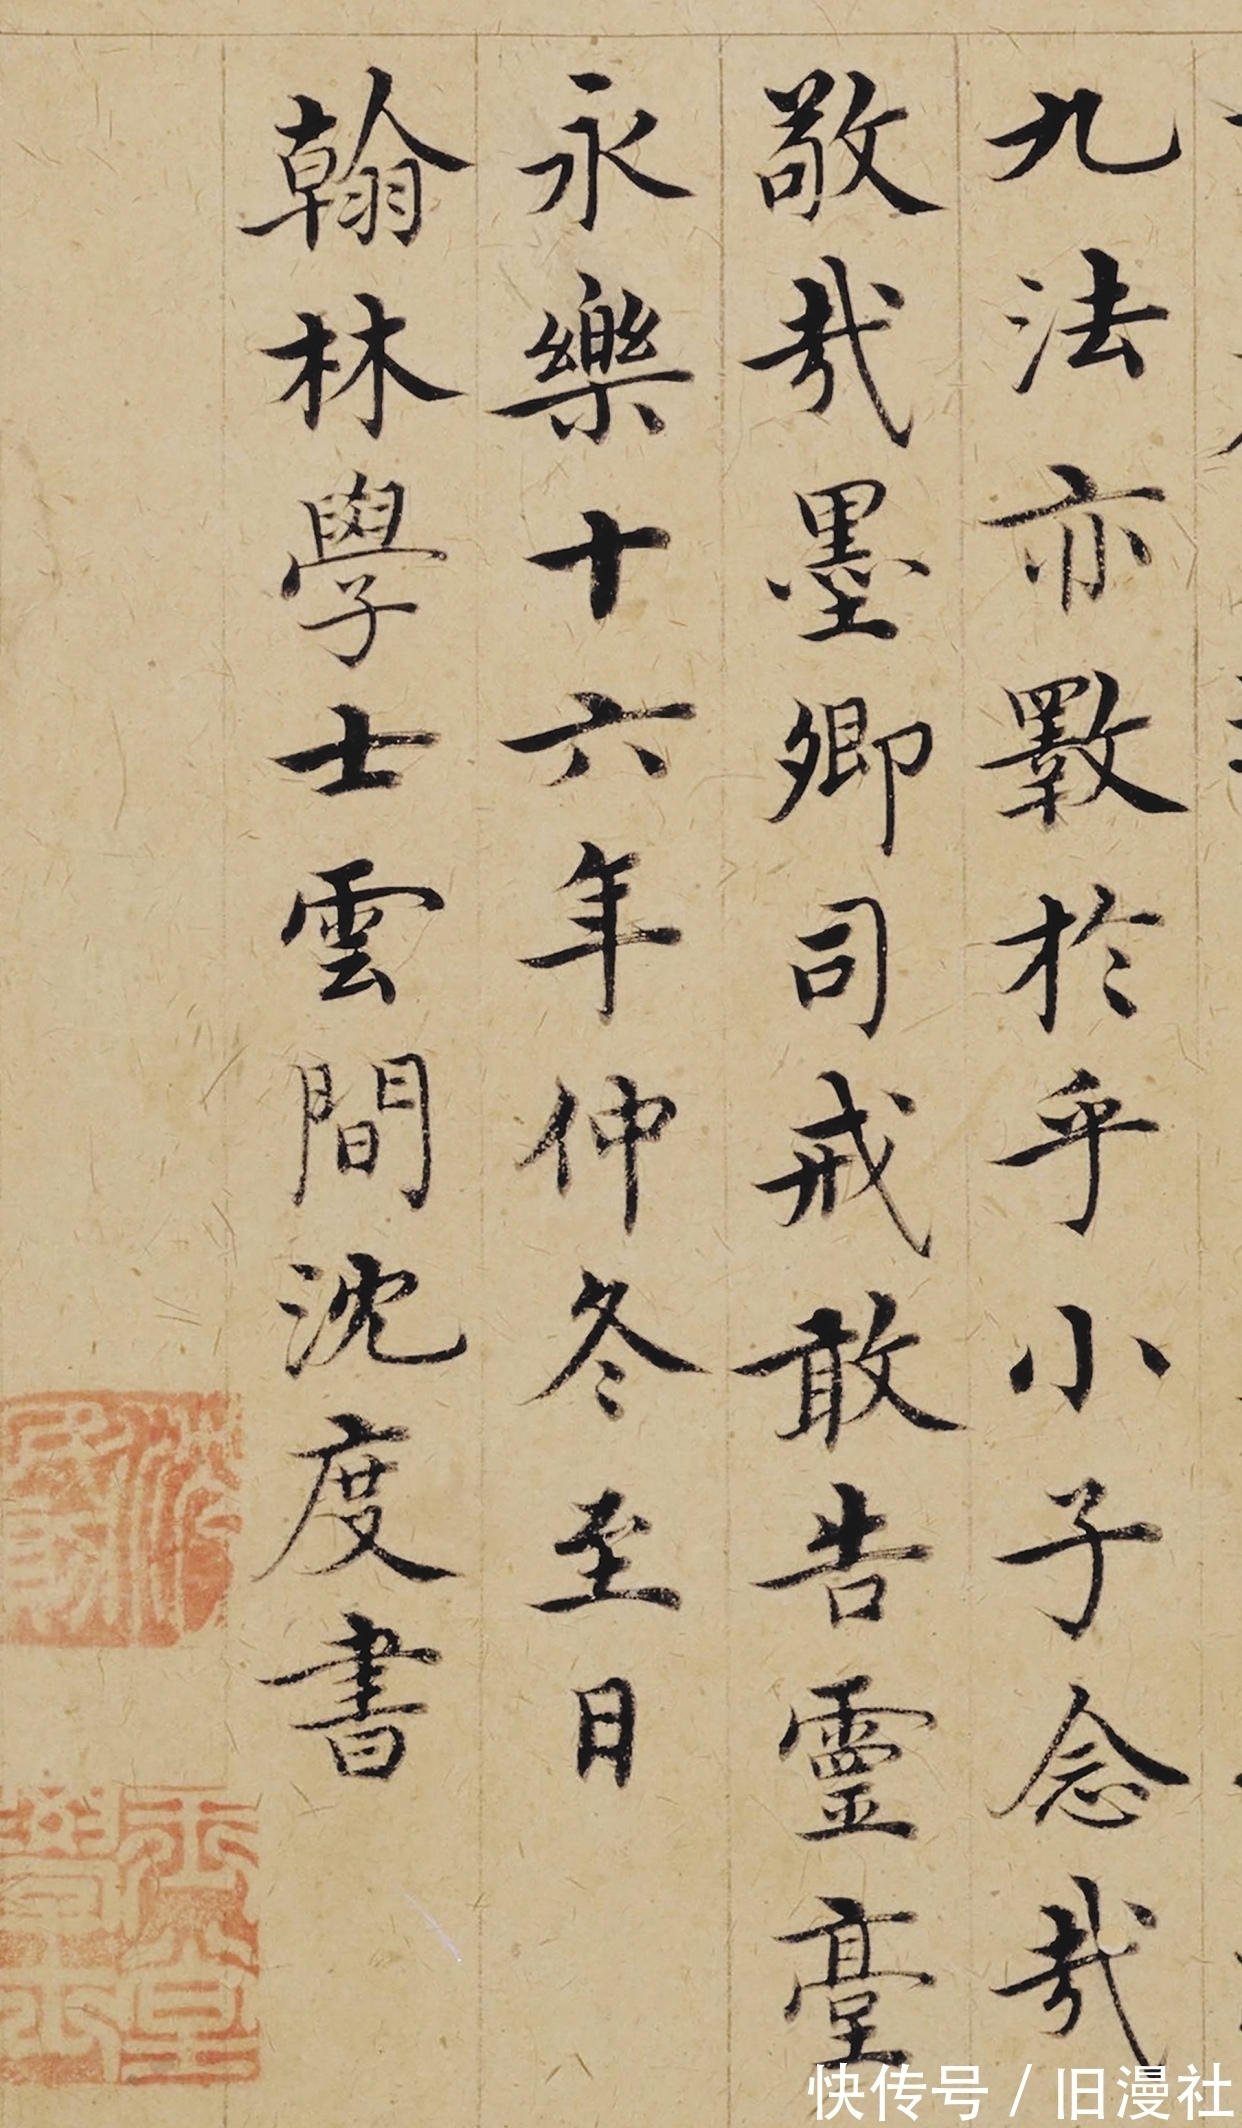 九法亦斁於乎小子念哉
敬哉墨卿司戒敢告靈臺
永樂十六年仲冬至日
翰林學士雲間沈度書
快传号/旧漫社